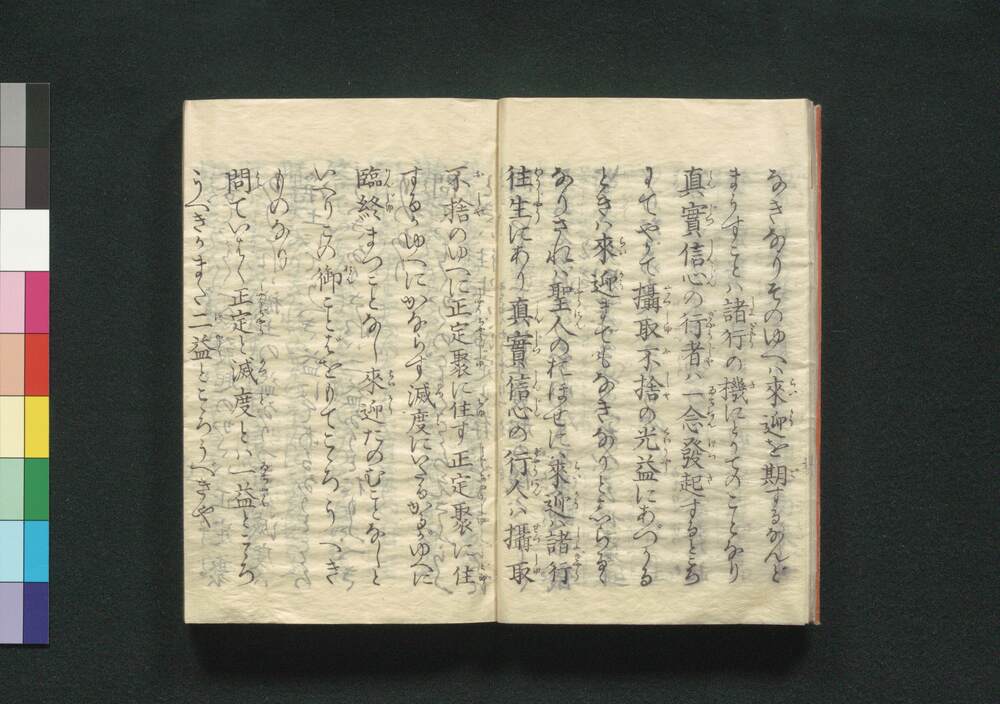 なきなりそのゆへハ來迎を期するなんど
まうすことハ諸行の機にとりてのことなり
真實信心の行者ハ一念發起するところ
にてやがて攝取不捨の光益にあづかる
ときハ來迎までもなきなりとしらるゝ
なりされハ聖人のおほせにハ來迎ハ諸行
往生にあり真實信心の行人ハ攝取
不捨のゆへに正定聚に住す正定聚に住
するがゆへにかならす滅度にいたるかるがゆへに
臨終まつことなし來迎たのむことなしと
いへりこの御ことばをもてこころうべき
ものなり
問ていはく正定と滅度とハ一益とこころ
うべきかまた二益とこころうべきや